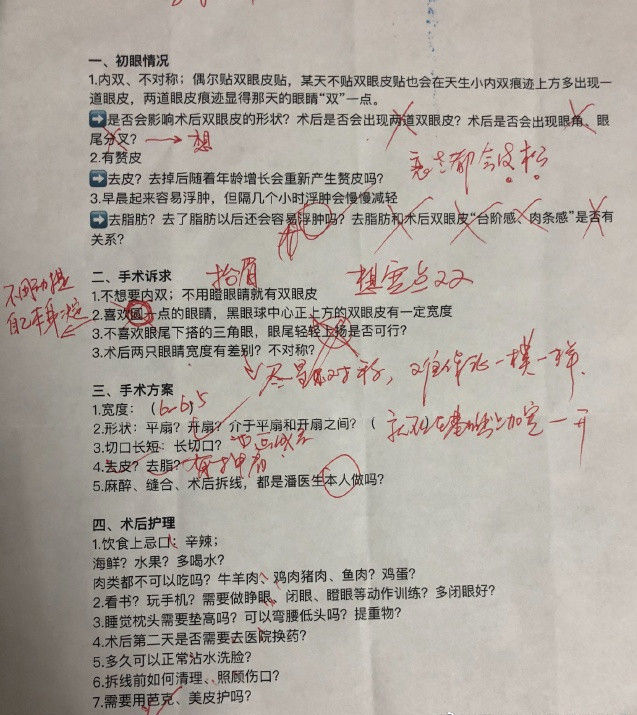 一、初眼情况
1.内双、不对称；偶尔贴双眼皮贴，某天不贴双眼皮贴也会在天生小内双痕迹上方多出现一
道眼皮，两道眼皮痕迹显得那天的眼睛“双”一点。
➡是否会影响术后双眼皮的形状？术后是否会出现两道双眼皮？术后是否会出现眼角、眼
尾分叉？ 想
2.有赘皮
➡去皮？去掉后随着年龄增长会重新产生赘皮吗？
3.早晨起来容易浮肿，但隔几个小时浮肿会慢慢减轻
➡去脂肪？去了脂肪以后还会容易浮肿吗？去脂肪和术后双眼皮“台阶感、肉条感”是否有
关系？
二、手术诉求 抬眉
1.不想要内双；不用瞪眼睛就有双眼皮
2.喜欢圆一点的眼睛，黑眼球中心正上方的双眼皮有一定宽度
3.不喜欢眼尾下搭的三角眼，眼尾轻轻上扬是否可行？
3.术后两只眼睛宽度有差别？不对称？
尽量 对称，难 一模一样.
三、手术方案
1.宽度：（6-6.5
2.形状：平扇？开扇？介于平扇和开扇之间？（
3.切口长短：长切口？
4.去皮？去脂？
5.麻醉、缝合、术后拆线，都是潘医生本人做吗？
四、术后护理
1.饮食上忌口：辛辣；
海鲜？水果？多喝水？
肉类都不可以吃吗？牛羊肉、鸡肉猪肉、鱼肉？鸡蛋？
2.看书？玩手机？需要做睁眼、闭眼、瞪眼等动作训练？多闭眼好？
3.睡觉枕头需要垫高吗？可以弯腰低头吗？提重物？
4.术后第二天是否需要去医院换药？
5.多久可以正常沾水洗脸？
6.拆线前如何清理、照顾伤口？
7.需要用芭克、美皮护吗？